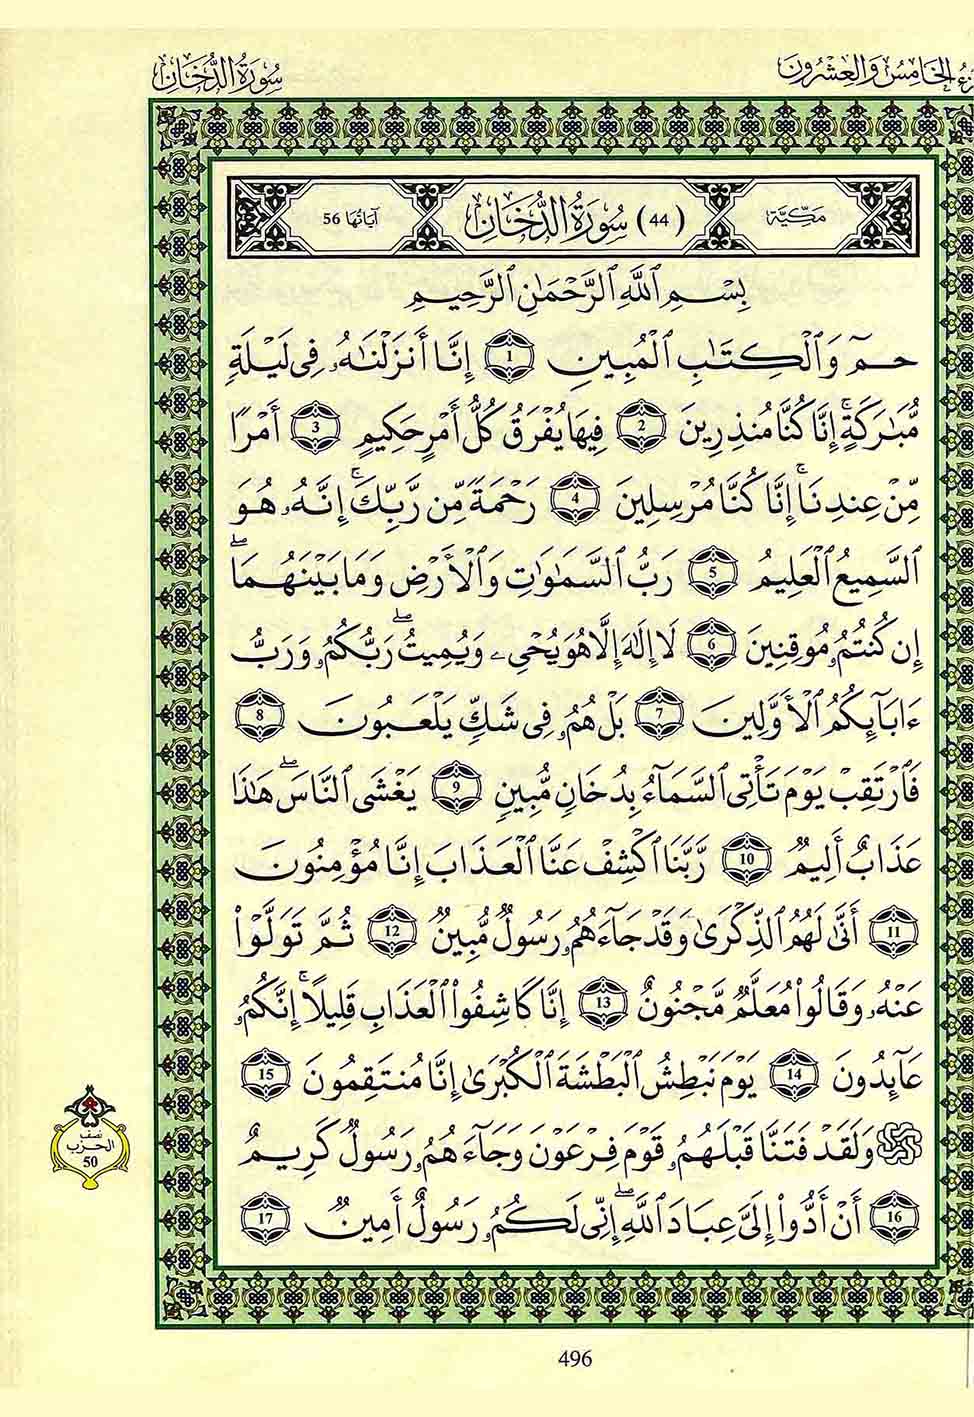 الخَامِسُ وَالعِشْرُونَ سُورَةُ الدُّخَانِ
مَكِّيَّة (44) سُورَةُ الدُّخَانِ آيَاتُهَا 56
بِسْمِ اِللَّهِ اِلرَّحْمَٰنِ اِلرَّحِيمِ
حمٓ وَالْكِتَٰبِ اِلْمُبِينِ 1 إِنَّا أَنزَلْنَٰهُۥ فِى لَيْلَةٍ
مُّبَٰرَكَةٍۚ إِنَّا كُنَّا مُنذِرِينَ 2 فِيهَا يُفْرَقُ كُلُّ أَمْرٍ حَكِيمٍ 3 أَمْرًا
مِّنْ عِندِنَاۚ إِنَّا كُنَّا مُرْسِلِينَ 4 رَحْمَةً مِّن رَّبِّكَۚ إِنَّهُۥ هُوَ
اَلسَّمِيعُ اُلْعَلِيمُ 5 رَبُّ اُلسَّمَٰوَٰتِ وَالْأَرْضِ وَمَا بَيْنَهُمَاۖ
إِن كُنتُمُۥ مُوقِنِينَ 6 لَا إِلَٰهَ إِلَّا هُوَ يُحْىِۦ وَيُمِيتُۖ رَبُّكُمُۥ وَرَبُّ
ءَابَآئِكُمُ اُلْأَوَّلِينَ 7 بَلْ هُمُۥ فِى شَكٍّ يَلْعَبُونَ 8
فَارْتَقِبْ يَوْمَ تَأْتِى اِلسَّمَآءُ بِدُخَانٍ مُّبِينٍ 9 يَغْشَى اَلنَّاسَۖ هَٰذَا
عَذَابٌ أَلِيمٌ 10 رَّبَّنَا اَكْشِفْ عَنَّا اَلْعَذَابَ إِنَّا مُؤْمِنُونَ
11 أَنَّىٰ لَهُمُ اُلذِّكْرَىٰ وَقَدْ جَآءَهُمُۥ رَسُولٌ مُّبِينٌ 12 ثُمَّ تَوَلَّوْاْ
عَنْهُۥ وَقَالُواْ مُعَلَّمٌ مَّجْنُونٌ 13 إِنَّا كَاشِفُواْ اُلْعَذَابِ قَلِيلًاۚ إِنَّكُمُۥ
عَآئِدُونَ 14 يَوْمَ نَبْطِشُ اُلْبَطْشَةَ اَلْكُبْرَىٰ إِنَّا مُنتَقِمُونَ 15
۞ وَلَقَدْ فَتَنَّا قَبْلَهُمُۥ قَوْمَ فِرْعَوْنَ وَجَآءَهُمُۥ رَسُولٌ كَرِيمٌ
16 أَنْ أَدُّواْ إِلَىَّ عِبَادَ اَللَّهِۖ إِنِّى لَكُمُۥ رَسُولٌ أَمِينٌ 17
نصف
الحزب
50
496